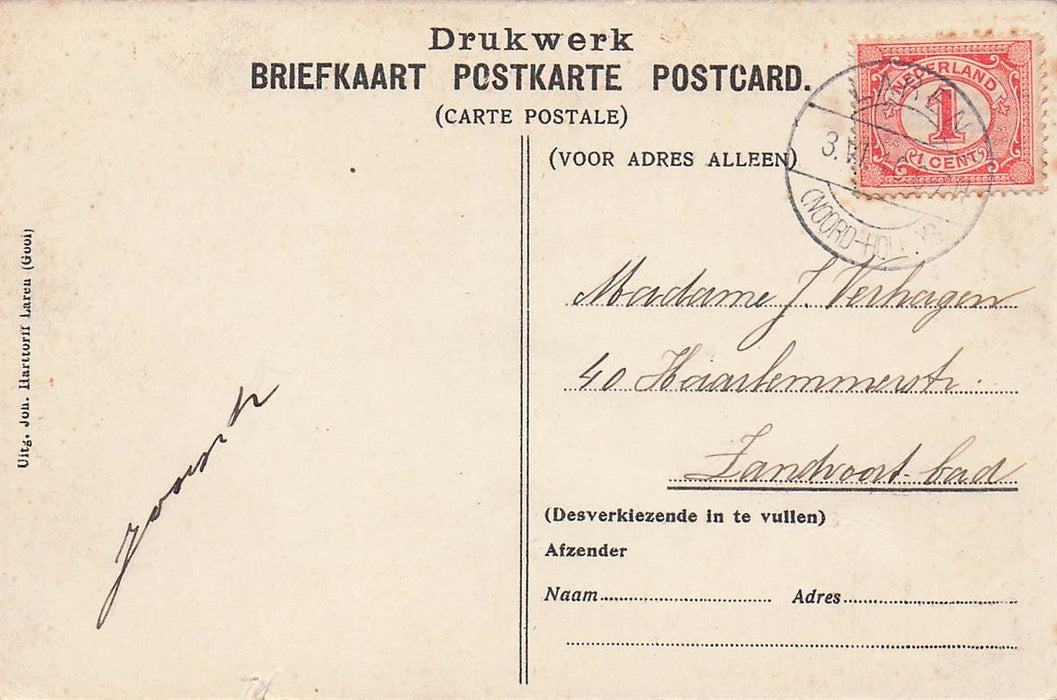 Drukwerk
BRIEFKAART POSTKARTE POSTCARD.
(CARTE POSTALE)
(VOOR ADRES ALLEEN)
NEDERLAND
1
1 CENT
LAREN
(NOORD-HOLL.)
Madame J. Verhagen
40 Haarlemmerstr.
Zandvoort-bad
(Desverkiezende in te vullen)
Afzender
Naam Adres
Uitg. Joh. Harttorff Laren (Gooi)